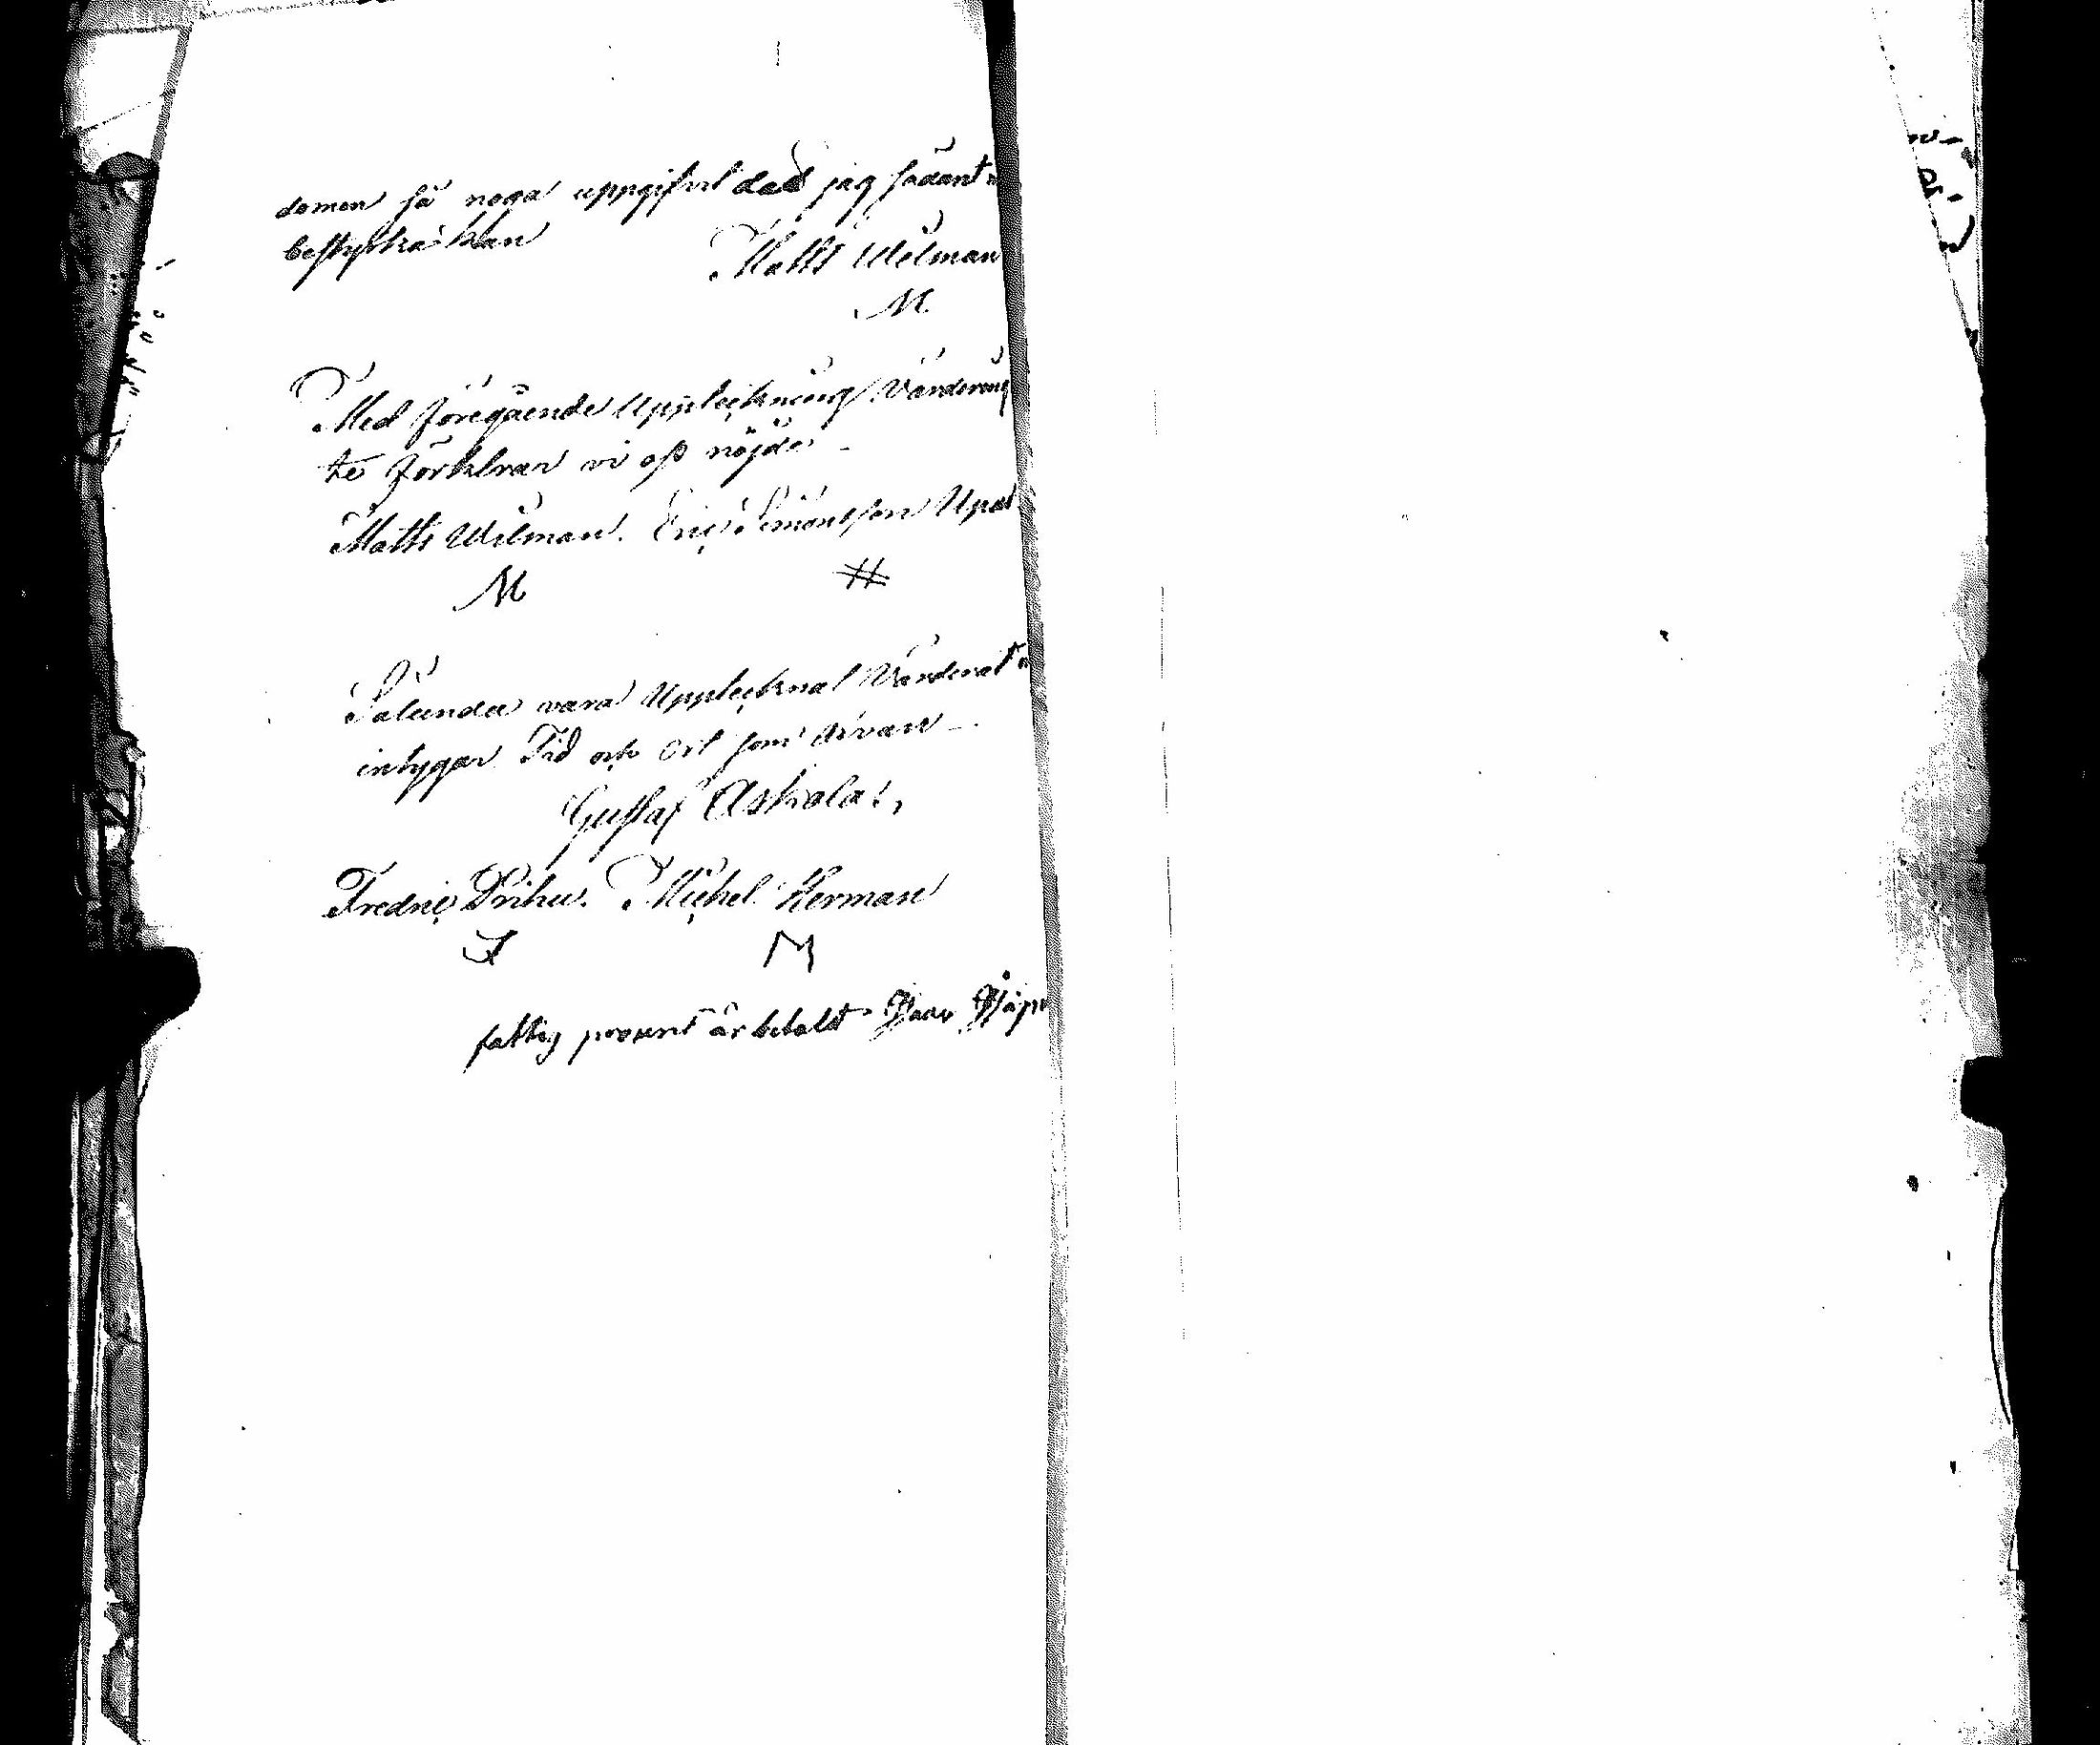 domen så noga uppgifvit det jag sådant
bestyrka kan
Matts Wilman
M
Med föregående Uppteckning Värdering
te förklrar vi oss nöjde
Matts Wilman. Eric Simonsson
M #
Sålunda vara Upptecknat Värderat
intygar Tid och Ort som ofvan
Gustaf Askola
Fredric Prihu. Michel Herman
M
fattig procent är betalt